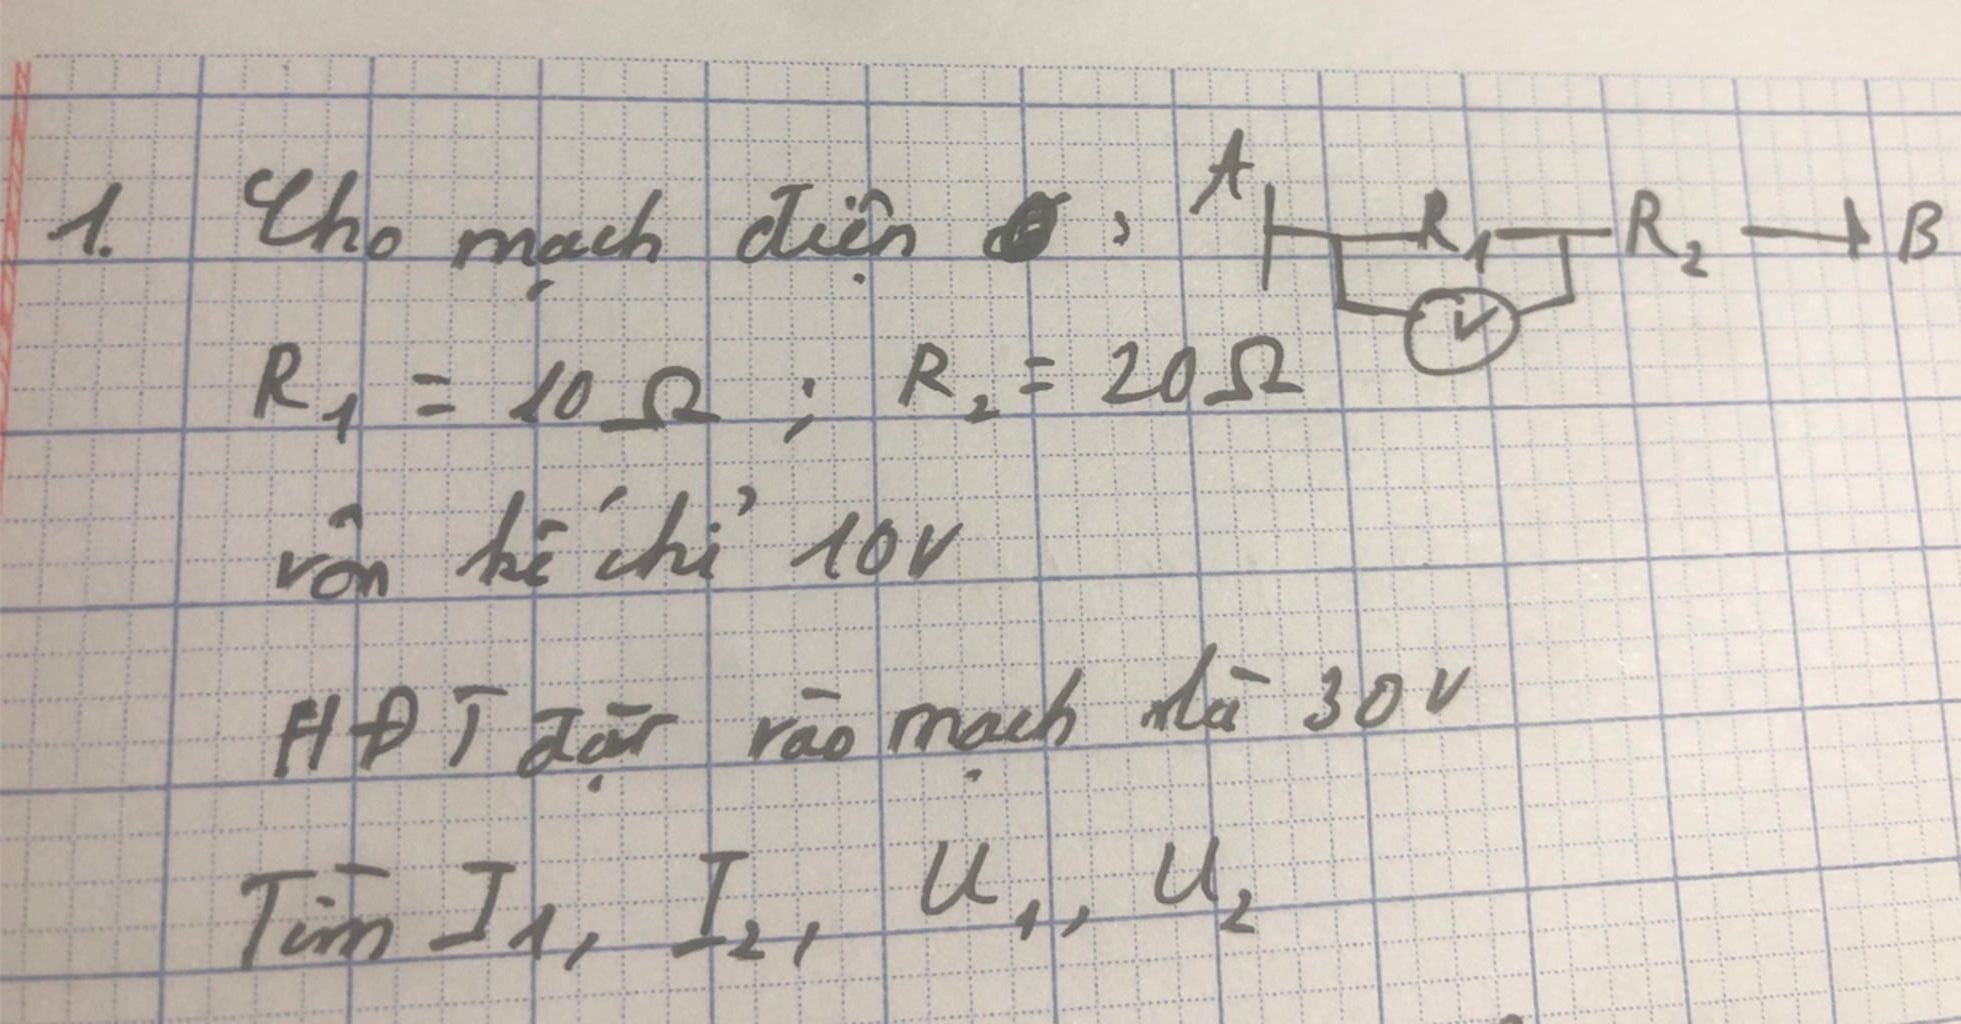 1. Cho mạch điện : A R₁ R₂ B
V
R₁ = 10Ω ; R₂ = 20Ω
vôn kế chỉ 10V
HĐT đặt vào mạch là 30V
Tìm I₁, I₂, U₁, U₂